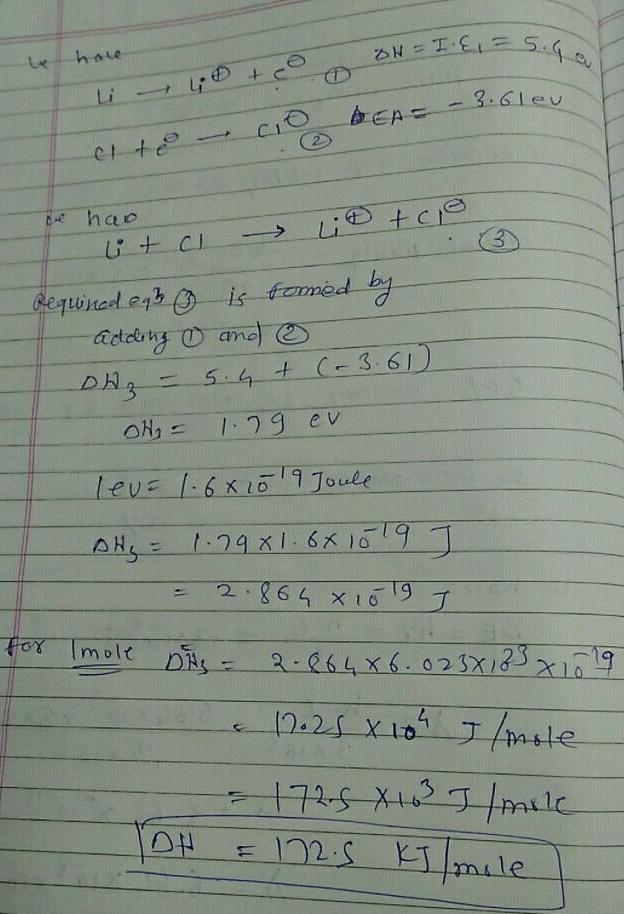 we have
Li → Li⊕ + e⊖ ① ΔH = I.E₁ = 5.4 ev
Cl + e⊖ → Cl⊖ ② ΔEA = -3.61 ev
we hav
Li + Cl → Li⊕ + Cl⊖ ③
Required eqⁿ ③ is formed by
adding ① and ②
ΔH₃ = 5.4 + (-3.61)
ΔH₃ = 1.79 ev
1ev = 1.6 × 10⁻¹⁹ Joule
ΔH₃ = 1.79 × 1.6 × 10⁻¹⁹ J
= 2.864 × 10⁻¹⁹ J
for 1mole ΔH₃ = 2.864 × 6.023 × 10²³ × 10⁻¹⁹
= 17.25 × 10⁴ J/mole
= 172.5 × 10³ J/mole
ΔH = 172.5 KJ/mole